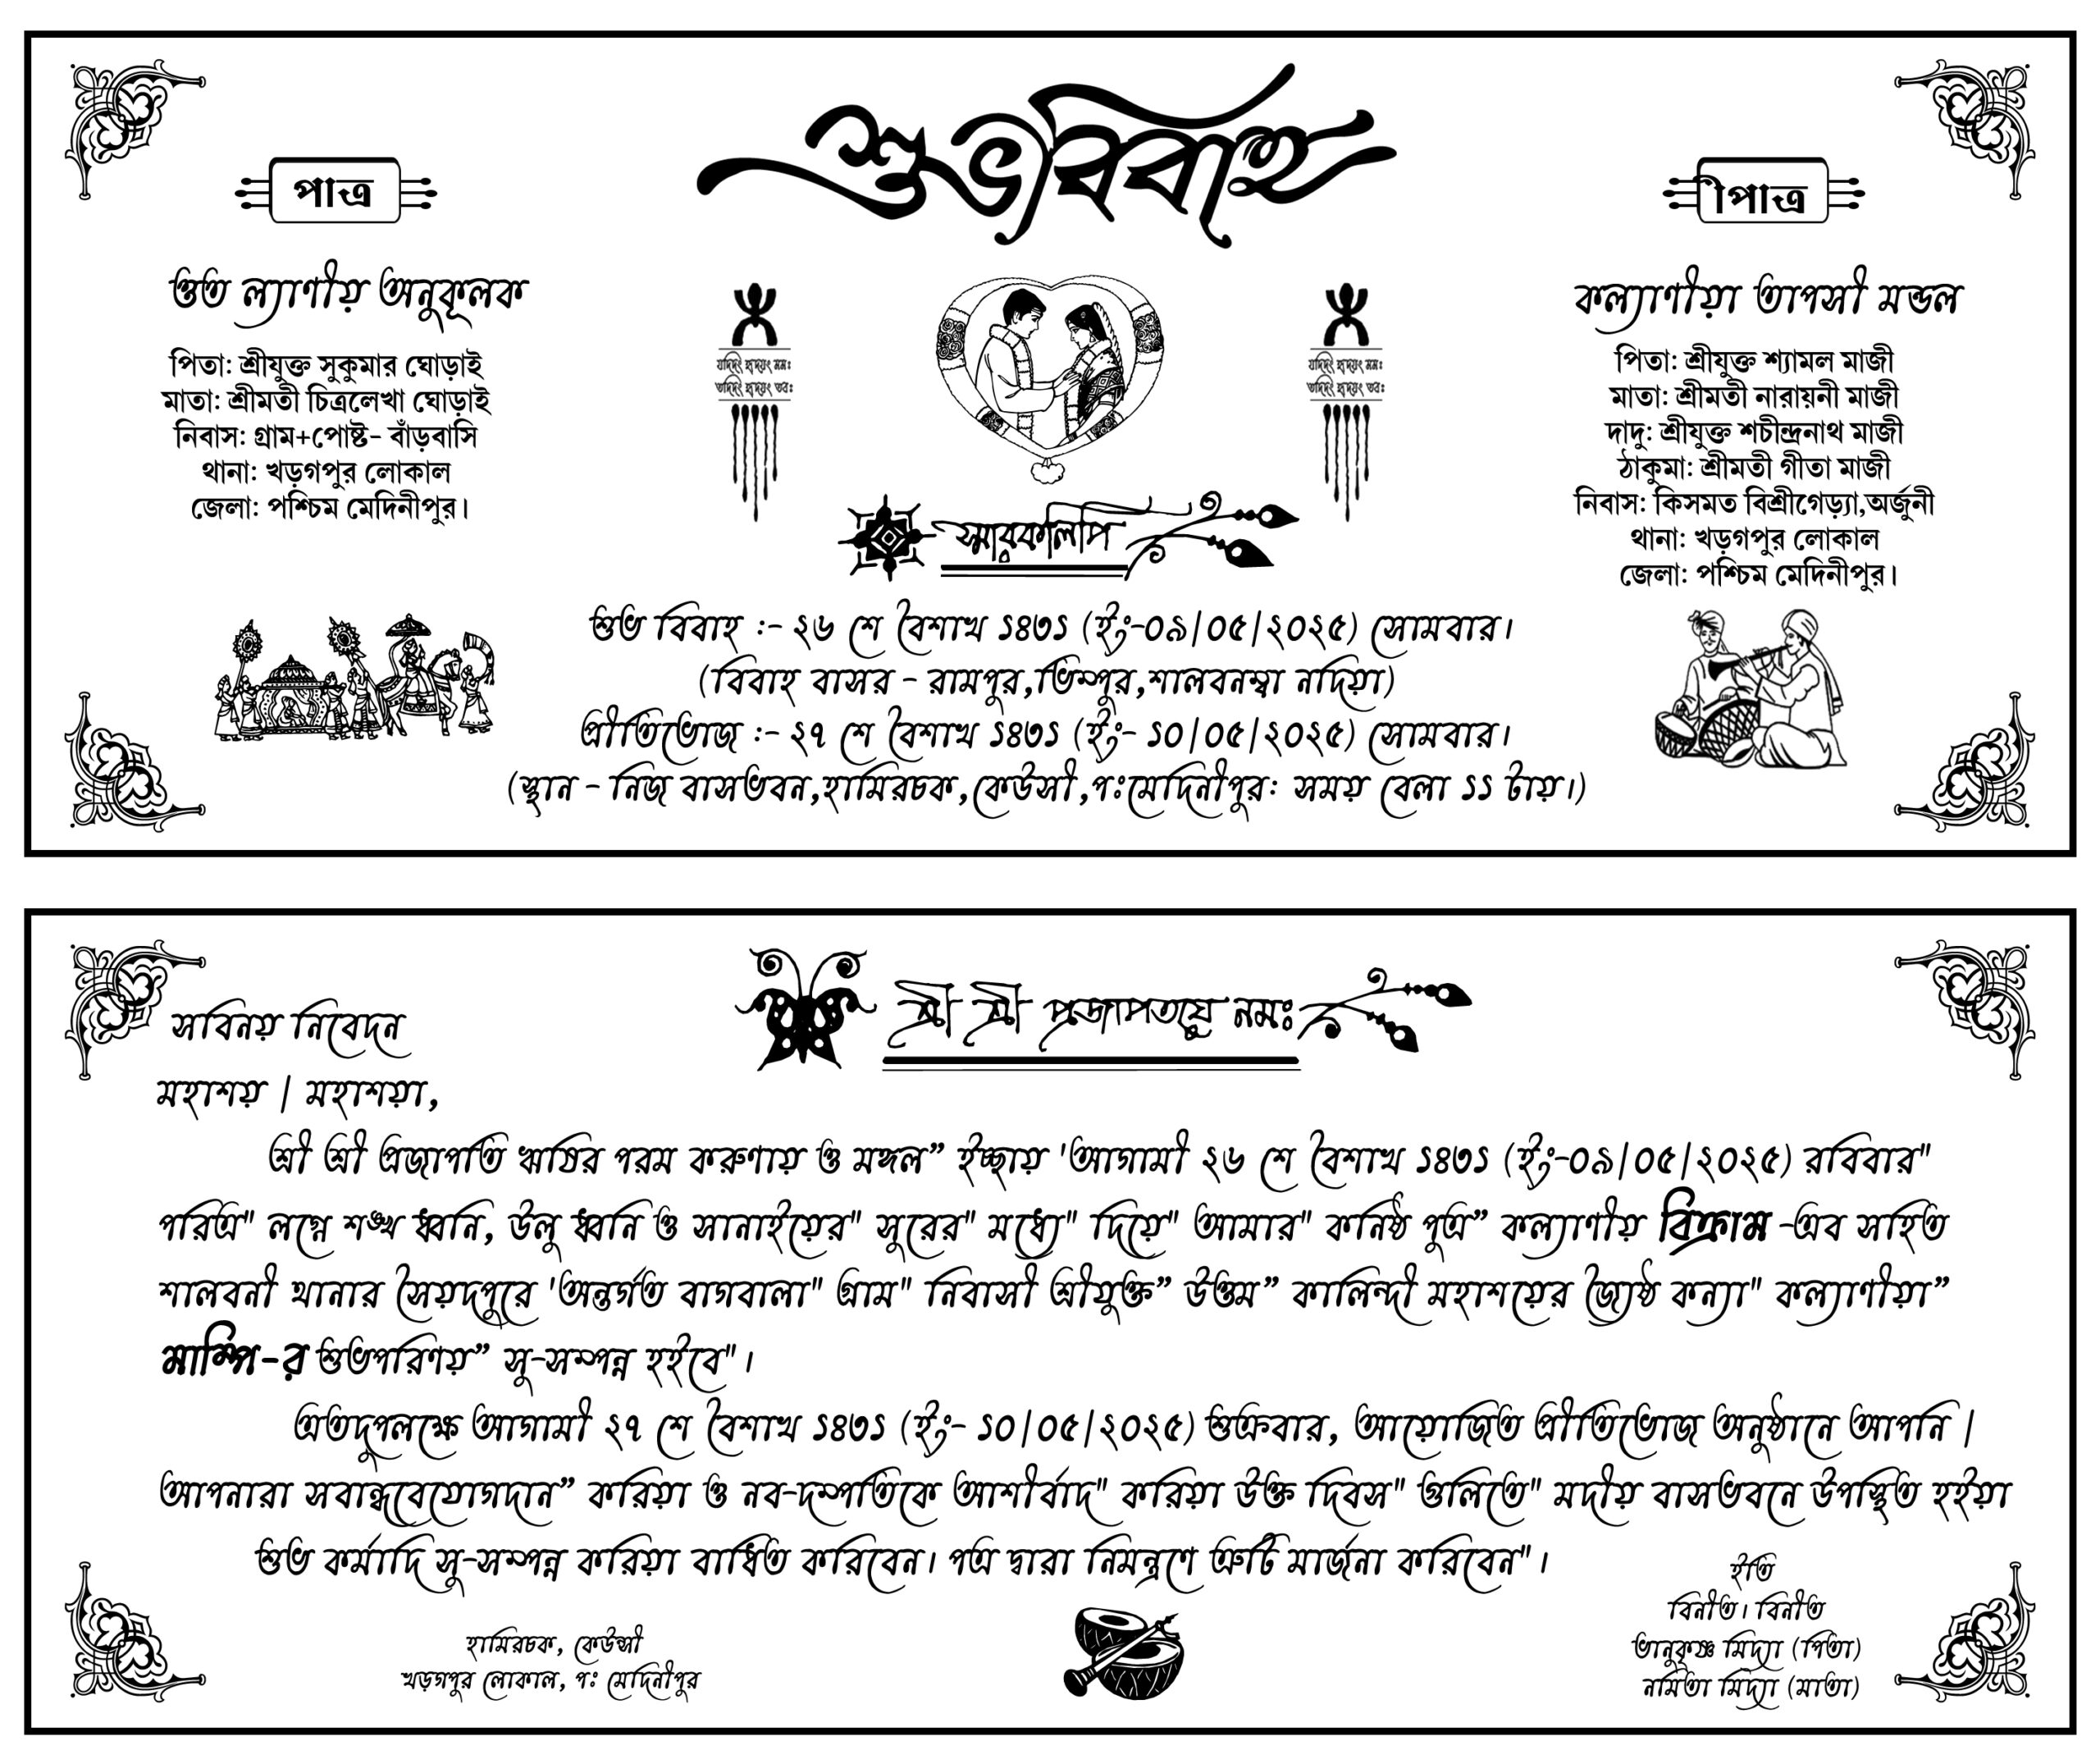 শুভবিবাহ
পাত্র
ীপাত্র
শুভ ল্যাণীয় অনুকূলক
পিতা: শ্রীযুক্ত সুকুমার ঘোড়াই
মাতা: শ্রীমতী চিত্রলেখা ঘোড়াই
নিবাস: গ্রাম+পোষ্ট- বাঁড়বাসি
থানা: খড়গপুর লোকাল
জেলা: পশ্চিম মেদিনীপুর।
যদিদং হৃদয়ং মমঃ
তদিদং হৃদয়ং তবঃ
যদিদং হৃদয়ং মমঃ
তদিদং হৃদয়ং তবঃ
কল্যাণীয়া তাপসী মন্ডল
পিতা: শ্রীযুক্ত শ্যামল মাজী
মাতা: শ্রীমতী নারায়নী মাজী
দাদু: শ্রীযুক্ত শচীন্দ্রনাথ মাজী
ঠাকুমা: শ্রীমতী গীতা মাজী
নিবাস: কিসমত বিশ্রীগেড়্যা,অর্জুনী
থানা: খড়গপুর লোকাল
জেলা: পশ্চিম মেদিনীপুর।
স্মারকলিপি
শুভ বিবাহ :- ২৬ শে বৈশাখ ১৪৩১ (ইং-০৯/০৫/২০২৫) সোমবার।
(বিবাহ বাসর - রামপুর,ভিম্পুর,শালবনম্বা নদিয়া)
প্রীতিভোজ :- ২৭ শে বৈশাখ ১৪৩১ (ইং- ১০/০৫/২০২৫) সোমবার।
(স্থান - নিজ বাসভবন,হামিরচক,কেউসী,পঃমেদিনীপুরঃ সময় বেলা ১১ টায়।)
শ্রী শ্রী প্রজাপতয়ে নমঃ
সবিনয় নিবেদন
মহাশয় / মহাশয়া,
শ্রী শ্রী প্রজাপতি ঋষির পরম করুণায় ও মঙ্গল” ইচ্ছায় 'আগামী ২৬ শে বৈশাখ ১৪৩১ (ইং-০৯/০৫/২০২৫) রবিবার"
পরিত্র" লগ্নে শঙ্খ ধ্বনি, উলু ধ্বনি ও সানাইয়ের" সুরের" মধ্যে" দিয়ে" আমার" কনিষ্ঠ পুত্র” কল্যাণীয় বিক্রাম -এব সহিত
শালবনী থানার সৈয়দপুরে 'অন্তর্গত বাগবালা" গ্রাম" নিবাসী শ্রীযুক্ত” উত্তম” কালিন্দী মহাশয়ের জ্যৈষ্ঠ কন্যা" কল্যাণীয়া”
মাম্পি-র শুভপরিণয়” সু-সম্পন্ন হইবে"।
এতদুপলক্ষে আগামী ২৭ শে বৈশাখ ১৪৩১ (ইং- ১০/০৫/২০২৫) শুক্রবার, আয়োজিত প্রীতিভোজ অনুষ্ঠানে আপনি /
আপনারা সবান্ধবেযোগদান” করিয়া ও নব-দম্পতিকে আশীর্বাদ" করিয়া উক্ত দিবস" গুলিতে" মদীয় বাসভবনে উপস্থিত হইয়া
শুভ কর্মাদি সু-সম্পন্ন করিয়া বাধিত করিবেন। পত্র দ্বারা নিমন্ত্রণে ত্রুটি মার্জনা করিবেন"।
হামিরচক, কেউন্সী
খড়গপুর লোকাল, পঃ মেদিনীপুর
ইতি
বিনীত। বিনীত
ভানুকৃষ্ণ মিদ্যা (পিতা)
নমিতা মিদ্যা (মাতা)